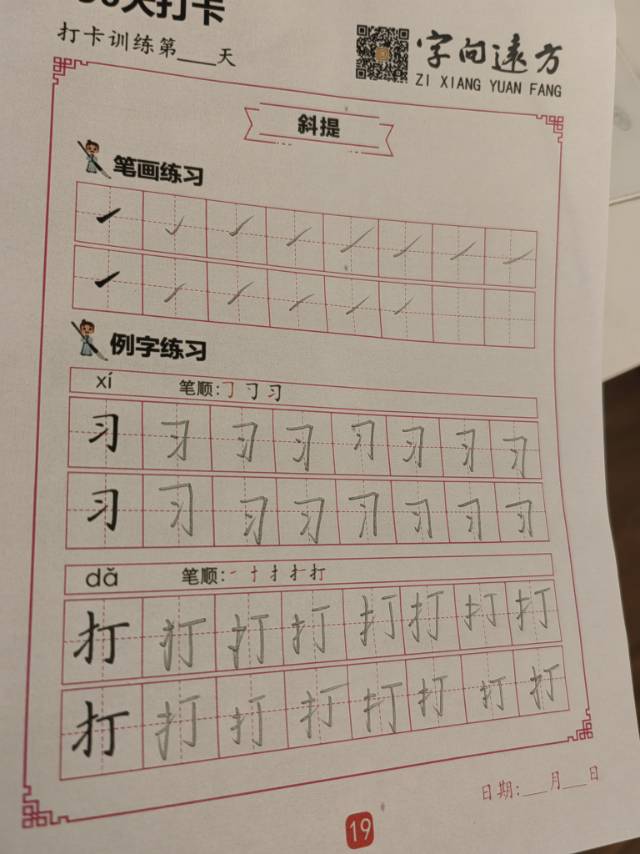 天打卡
打卡训练第___天
字向远方
ZI XIANG YUAN FANG
斜提
笔画练习
例字练习
xí 笔顺:
习 习 习 习 习 习 习 习
习 习 习 习 习 习 习 习
dǎ 笔顺:
打 打 打 打 打 打 打 打
打 打 打 打 打 打 打 打
日期:___月___日
19